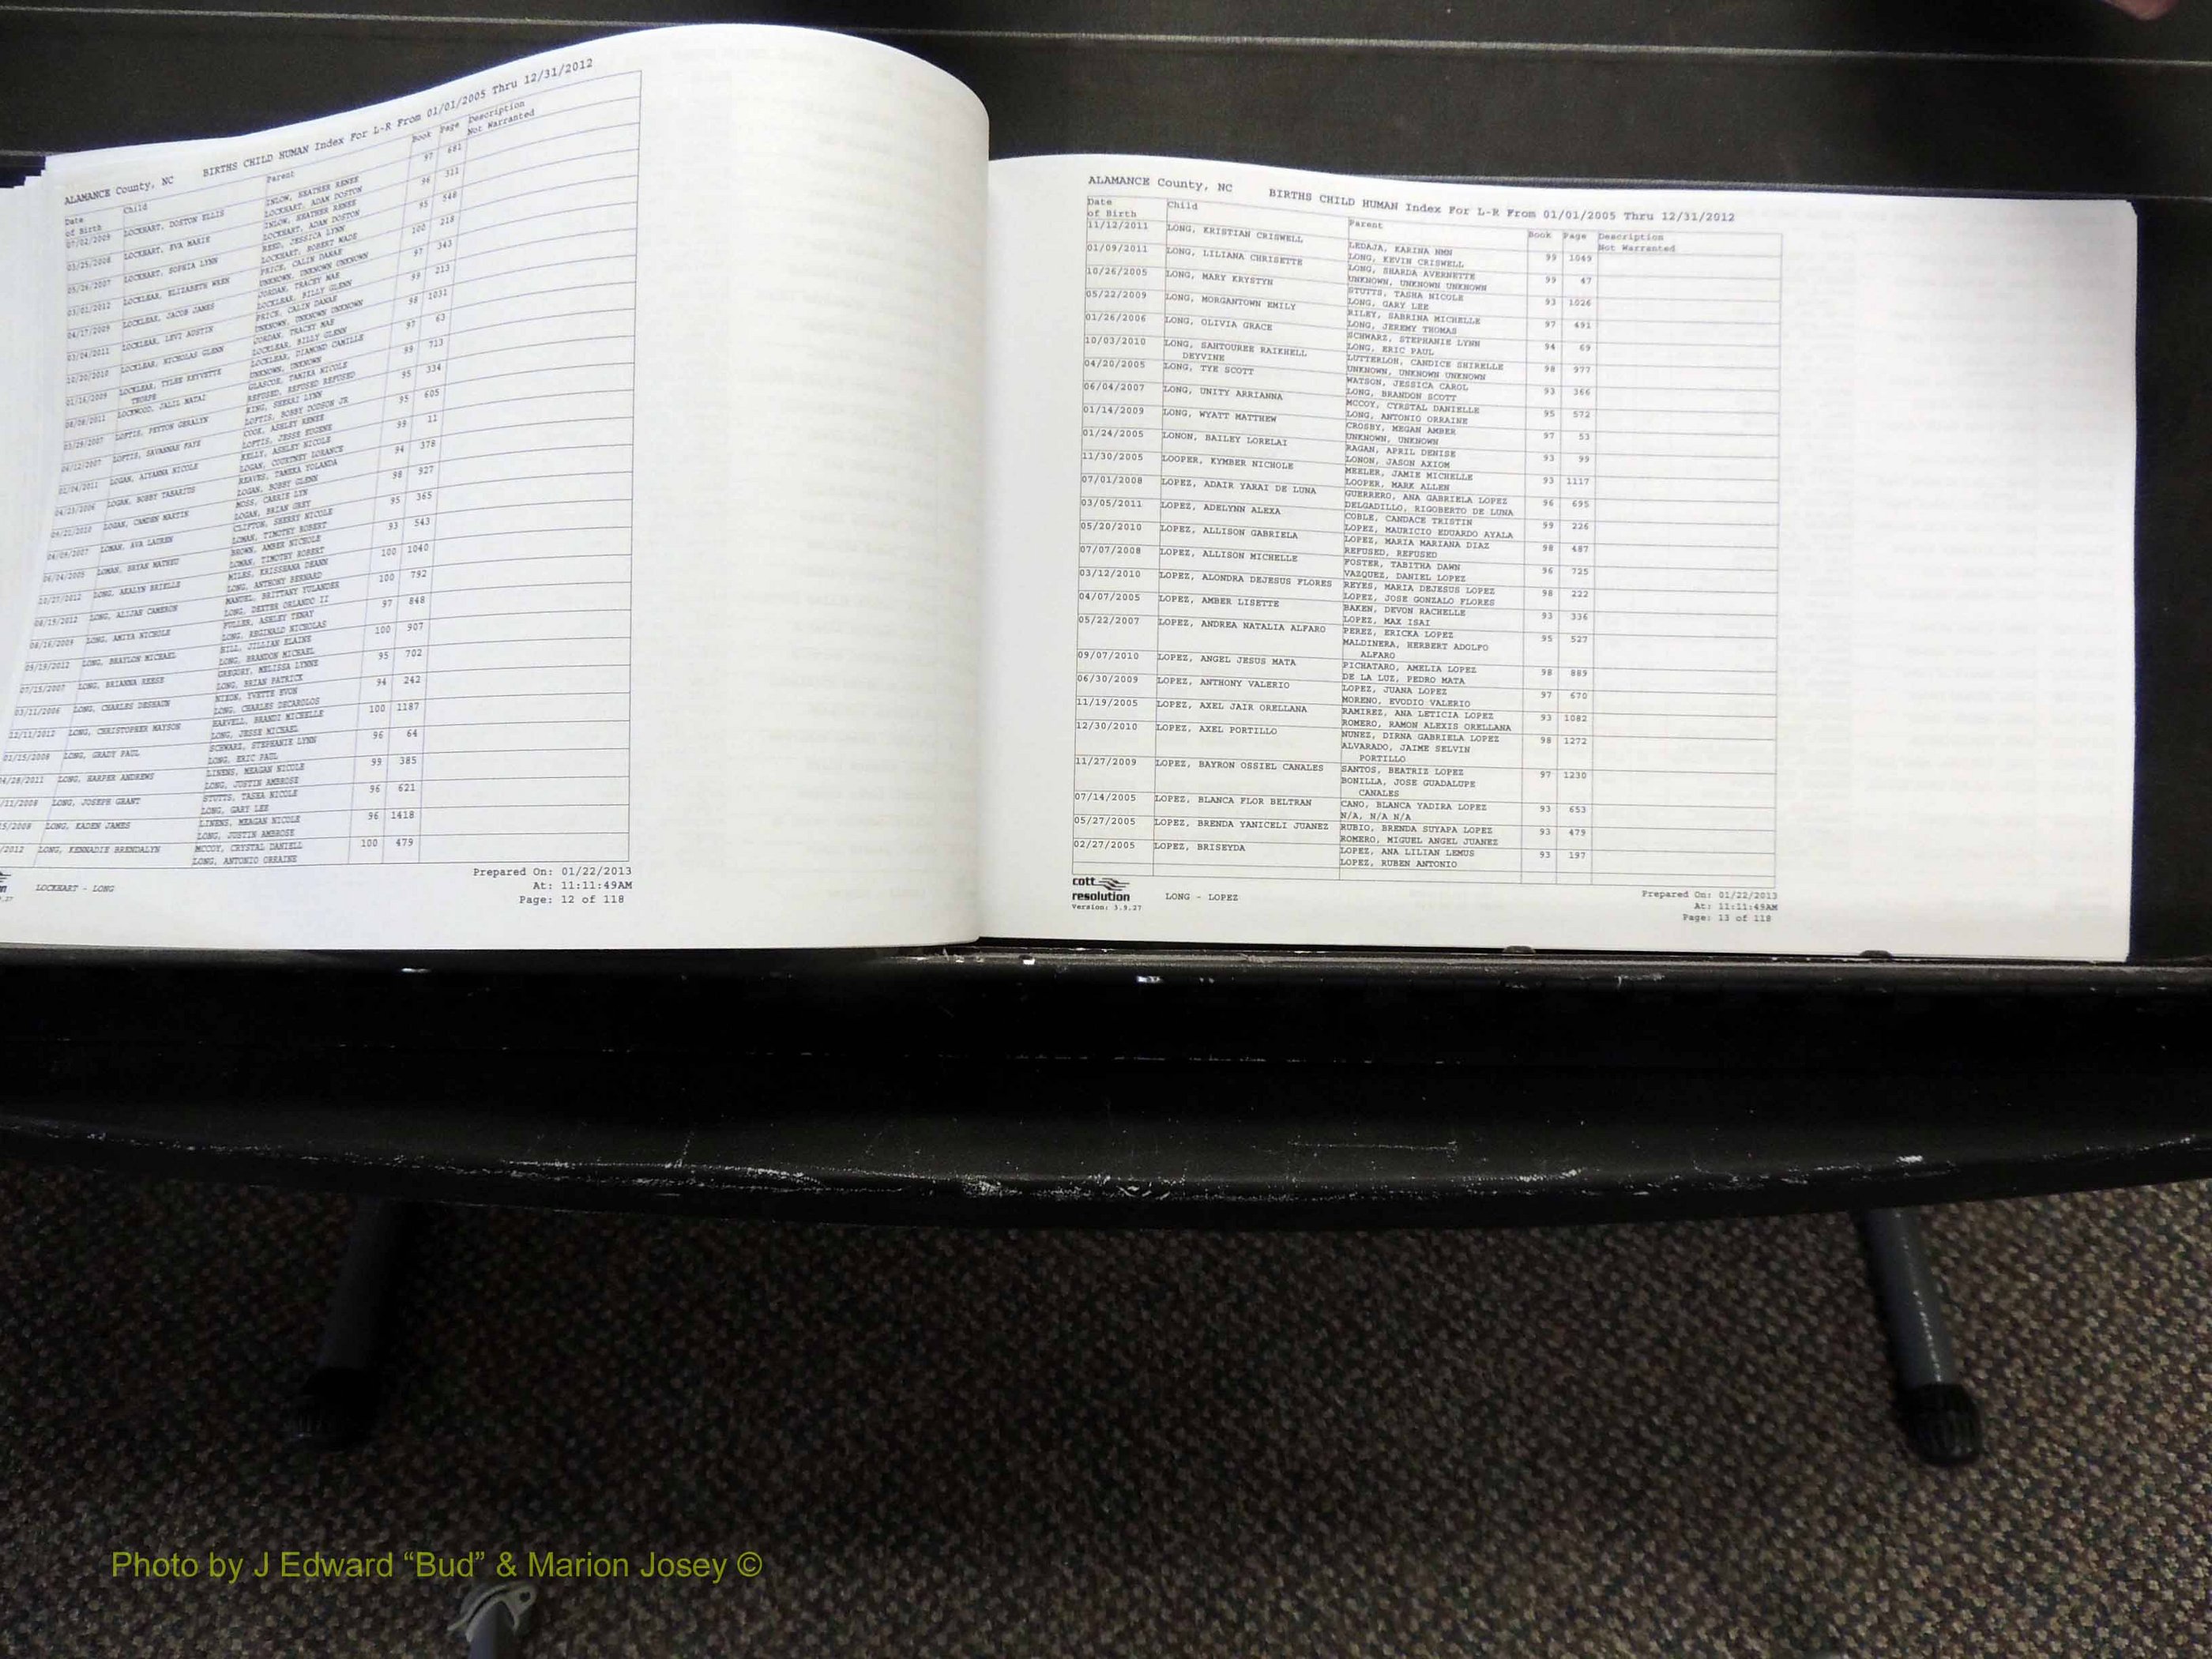 ALAMANCE County, NC BIRTHS CHILD HUMAN Index For L-R From 01/01/2005 Thru 12/31/2012
Date of Birth Child Parent Book Page Description Not Warranted
07/02/2009 LOCKHART, DOSTON ELLIS INLOW, HEATHER RENEE 97 681
LOCKHART, ADAM DOSTON
03/25/2008 LOCKHART, EVA MARIE INLOW, HEATHER RENEE 96 311
LOCKHART, ADAM DOSTON
05/26/2007 LOCKHART, SOPHIA LYNN REED, JESSICA LYNN 95 548
LOCKHART, ROBERT WADE
03/01/2012 LOCKLEAR, ELIZABETH WREN PRICE, CALIN DANAE 100 218
UNKNOWN, UNKNOWN UNKNOWN
04/17/2009 LOCKLEAR, JACOB JAMES JORDAN, TRACEY MAE 97 343
LOCKLEAR, BILLY GLENN
03/04/2011 LOCKLEAR, LEVI AUSTIN PRICE, CALIN DANAE 99 213
UNKNOWN, UNKNOWN UNKNOWN
10/20/2010 LOCKLEAR, NICHOLAS GLENN JORDAN, TRACEY MAE 98 1031
LOCKLEAR, BILLY GLENN
01/16/2009 LOCKLEAR, TYLEE KEYVETTE THORPE LOCKLEAR, DIAMOND CAMILLE 97 63
UNKNOWN, UNKNOWN
08/08/2011 LOCKWOOD, JALIL NATAI GLASCOE, TANIKA NICOLE 99 713
REFUSED, REFUSED REFUSED
03/29/2007 LOFTIS, PEYTON GERALYN KING, SHERRI LYNN 95 334
LOFTIS, BOBBY DODSON JR
06/12/2007 LOFTIS, SAVANNAH FAYE COOK, ASHLEY RENEE 95 605
LOFTIS, JESSE EUGENE
01/04/2011 LOGAN, AIYANNA NICOLE KELLY, ASHLEY NICOLE 99 11
LOGAN, COURTNEY LORANCE
04/23/2006 LOGAN, BOBBY TABARIUS REAVES, TAMEKA YOLANDA 94 378
LOGAN, BOBBY GLENN
09/22/2010 LOGAN, CAMDEN MARTIN MOSS, CARRIE LYN 98 927
LOGAN, BRIAN GREY
04/09/2007 LOMAN, AVA LAUREN CLIFTON, SHERRY NICOLE 95 365
LOMAN, TIMOTHY ROBERT
06/04/2005 LOMAN, BRYAN MATHEU BROWN, AMBER NICHOLE 93 543
LOMAN, TIMOTHY ROBERT
10/27/2012 LONG, AKALYN BRIELLE MILES, KRISSHANA DEANN 100 1040
LONG, ANTHONY BERNARD
08/19/2012 LONG, ALIJAS CAMERON MANUEL, BRITTANY YULANDER 100 792
LONG, DEXTER ORLANDO II
08/16/2009 LONG, AMIYA NICHOLE FULLER, ASHLEY TENAY 97 848
LONG, REGINALD NICHOLAS
09/19/2012 LONG, BRAYLON MICHAEL HILL, JILLIAN ELAINE 100 907
LONG, BRANDON MICHAEL
07/15/2007 LONG, BRIANNA REESE GREGORY, MELISSA LYNNE 95 702
LONG, BRIAN PATRICK
03/11/2006 LONG, CHARLES DESHAUN NIXON, YVETTE EVON 94 242
LONG, CHARLES DECARDLOS
12/11/2012 LONG, CHRISTOPHER MAYSON HARVELL, BRANDI MICHELLE 100 1187
LONG, JESSE MICHAEL
01/15/2008 LONG, GRADY PAUL SCHWARZ, STEPHANIE LYNN 96 64
LONG, ERIC PAUL
4/28/2011 LONG, HARPER ANDREWS LINENS, MEAGAN NICOLE 99 385
LONG, JUSTIN AMBROSE
/11/2008 LONG, JOSEPH GRANT STUTTS, TASHA NICOLE 96 621
LONG, GARY LEE
5/2008 LONG, KADEN JAMES LINENS, MEAGAN NICOLE 96 1418
LONG, JUSTIN AMBROSE
/2012 LONG, KENNADIE BRENDALYN MCCOY, CRYSTAL DANIELL 100 479
LONG, ANTONIO ORRAINE
LOCKHART - LONG
Prepared On: 01/22/2013
At: 11:11:49AM
Page: 12 of 118
ALAMANCE County, NC BIRTHS CHILD HUMAN Index For L-R From 01/01/2005 Thru 12/31/2012
Date of Birth Child Parent Book Page Description Not Warranted
11/12/2011 LONG, KRISTIAN CRISWELL LEDAJA, KARINA NMN 99 1049
LONG, KEVIN CRISWELL
01/09/2011 LONG, LILIANA CHRISETTE LONG, SHARDA AVERNETTE 99 47
UNKNOWN, UNKNOWN UNKNOWN
10/26/2005 LONG, MARY KRYSTYN STUTTS, TASHA NICOLE 93 1026
LONG, GARY LEE
05/22/2009 LONG, MORGANTOWN EMILY RILEY, SABRINA MICHELLE 97 491
LONG, JEREMY THOMAS
01/26/2006 LONG, OLIVIA GRACE SCHWARZ, STEPHANIE LYNN 94 69
LONG, ERIC PAUL
10/03/2010 LONG, SAHTOUREE RAIKHELL DEYVINE LUTTERLOH, CANDICE SHIRELLE 98 977
UNKNOWN, UNKNOWN UNKNOWN
04/20/2005 LONG, TYE SCOTT WATSON, JESSICA CAROL 93 366
LONG, BRANDON SCOTT
06/04/2007 LONG, UNITY ARRIANNA MCCOY, CYRSTAL DANIELLE 95 572
LONG, ANTONIO ORRAINE
01/14/2009 LONG, WYATT MATTHEW CROSBY, MEGAN AMBER 97 53
UNKNOWN, UNKNOWN
01/24/2005 LONON, BAILEY LORELAI RAGAN, APRIL DENISE 93 99
LONON, JASON AXIOM
11/30/2005 LOOPER, KYMBER NICHOLE MEELER, JAMIE MICHELLE 93 1117
LOOPER, MARK ALLEN
07/01/2008 LOPEZ, ADAIR YARAI DE LUNA GUERRERO, ANA GABRIELA LOPEZ 96 695
DELGADILLO, RIGOBERTO DE LUNA
03/05/2011 LOPEZ, ADELYNN ALEXA COBLE, CANDACE TRISTIN 99 226
LOPEZ, MAURICIO EDUARDO AYALA
05/20/2010 LOPEZ, ALLISON GABRIELA LOPEZ, MARIA MARIANA DIAZ 98 487
REFUSED, REFUSED
07/07/2008 LOPEZ, ALLISON MICHELLE FOSTER, TABITHA DAWN 96 725
VAZQUEZ, DANIEL LOPEZ
03/12/2010 LOPEZ, ALONDRA DEJESUS FLORES REYES, MARIA DEJESUS LOPEZ 98 222
LOPEZ, JOSE GONZALO FLORES
04/07/2005 LOPEZ, AMBER LISETTE BAKEN, DEVON RACHELLE 93 336
LOPEZ, MAX ISAI
05/22/2007 LOPEZ, ANDREA NATALIA ALFARO PEREZ, ERICKA LOPEZ 95 527
MALDINERA, HERBERT ADOLFO
ALFARO
09/07/2010 LOPEZ, ANGEL JESUS MATA PICHATARO, AMELIA LOPEZ 98 889
DE LA LUZ, PEDRO MATA
06/30/2009 LOPEZ, ANTHONY VALERIO LOPEZ, JUANA LOPEZ 97 670
MORENO, EVODIO VALERIO
11/19/2005 LOPEZ, AXEL JAIR ORELLANA RAMIREZ, ANA LETICIA LOPEZ 93 1082
ROMERO, RAMON ALEXIS ORELLANA
12/30/2010 LOPEZ, AXEL PORTILLO NUNEZ, DIRNA GABRIELA LOPEZ 98 1272
ALVARADO, JAIME SELVIN
PORTILLO
11/27/2009 LOPEZ, BAYRON OSSIEL CANALES SANTOS, BEATRIZ LOPEZ 97 1230
BONILLA, JOSE GUADALUPE
CANALES
07/14/2005 LOPEZ, BLANCA FLOR BELTRAN CANO, BLANCA YADIRA LOPEZ 93 653
N/A, N/A N/A
05/27/2005 LOPEZ, BRENDA YANICELI JUANEZ RUBIO, BRENDA SUYAPA LOPEZ 93 479
ROMERO, MIGUEL ANGEL JUANEZ
02/27/2005 LOPEZ, BRISEYDA LOPEZ, ANA LILIAN LEMUS 93 197
LOPEZ, RUBEN ANTONIO
cott
resolution
Version: 3.9.27
LONG - LOPEZ
Prepared On: 01/22/2013
At: 11:11:49AM
Page: 13 of 118
Photo by J Edward “Bud” & Marion Josey ©